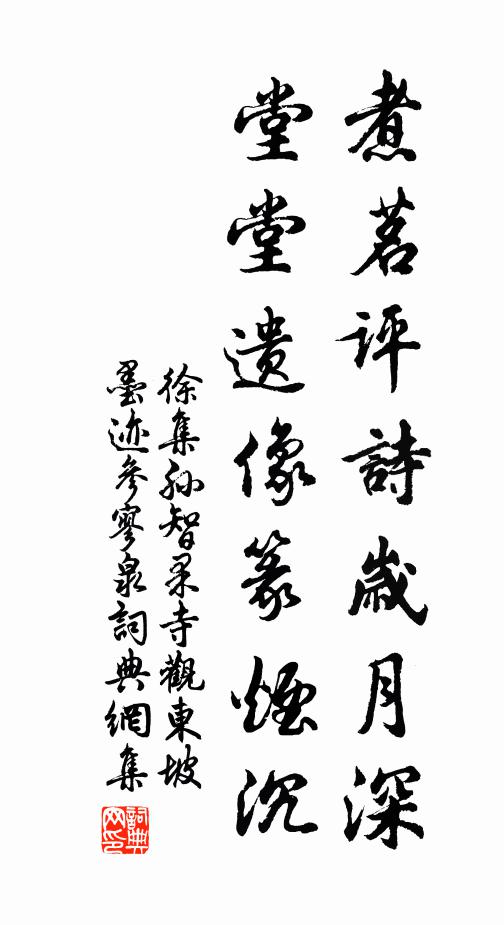 煮茗評詩歲月深
堂堂遺像篆煙沉
徐集孫智果寺觀東坡
墨迹參寥泉詞典網集
詞典網印